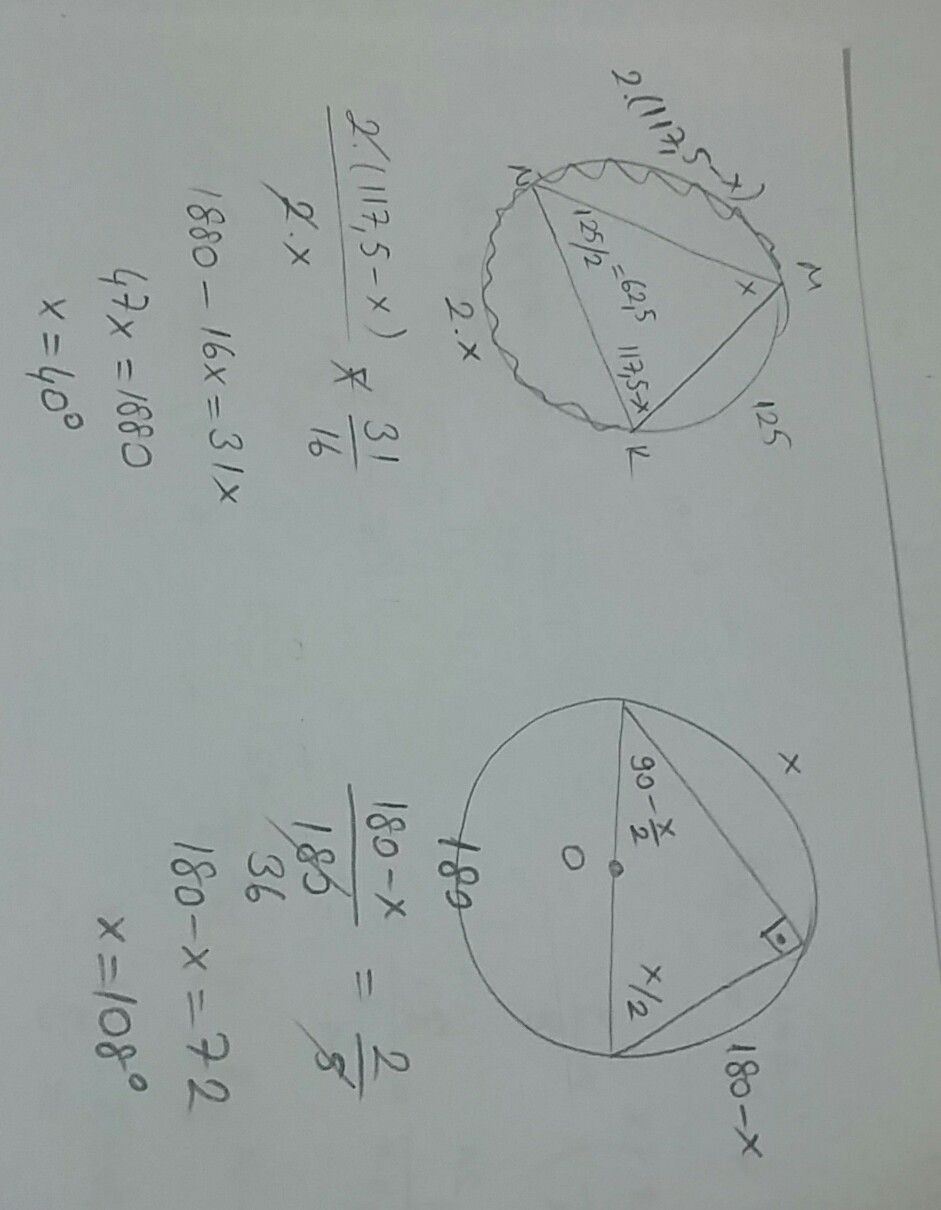 2.(117,5-x)
M
x
125
N
125/2 = 62,5
117,5-x
K
2.x
2.(117,5-x)
2.x
31
16
1880 - 16x = 31x
47x = 1880
x = 40°
x
90 - x/2
180-x
x/2
O
180
180-x
180
36
=
2
5
180-x = 72
x = 108°